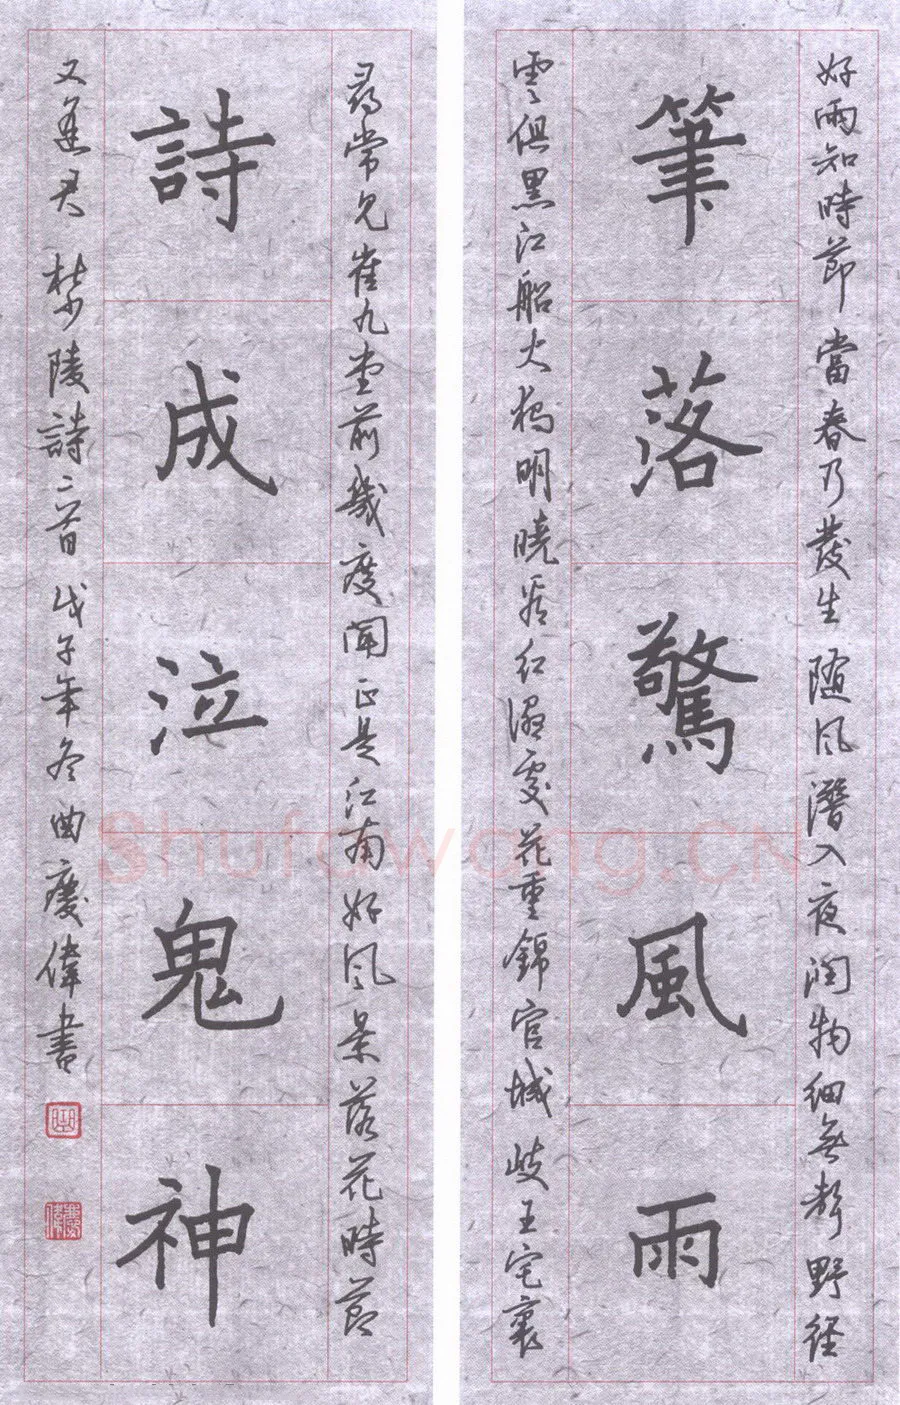 好雨知時節當春乃發生随風潛入夜潤物細無聲野徑
筆落驚風雨
雲俱黑江船火獨明曉看紅濕處花重錦官城岐王宅裏
尋常見崔九堂前幾度聞正是江南好風景落花時節
詩成泣鬼神
又逢君杜少陵詩二首戊子年冬曲慶偉書
Shufawang.CN